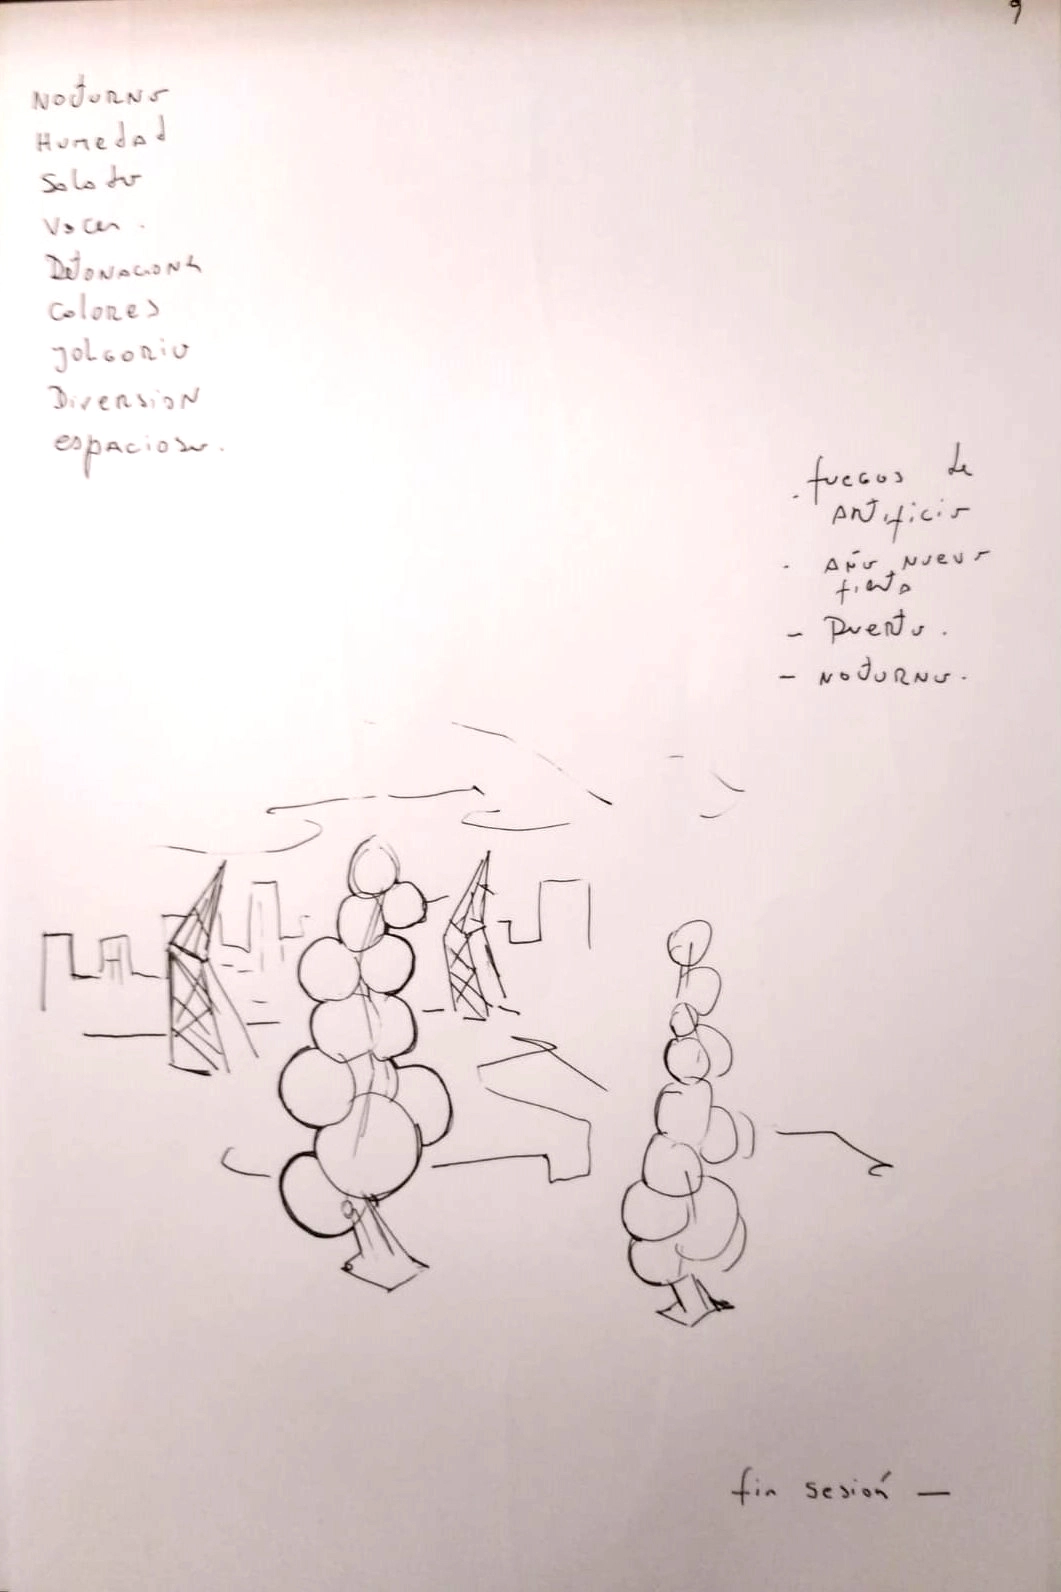 9
Nocturno
Humedad
Salado
Voces.
Detonaciones
Colores
Jolgorio
Diversion
espacioso.
. fuegos de
Artificio
. Año nuevo
fiesta
- Puerto.
- nocturno.
fin sesión —